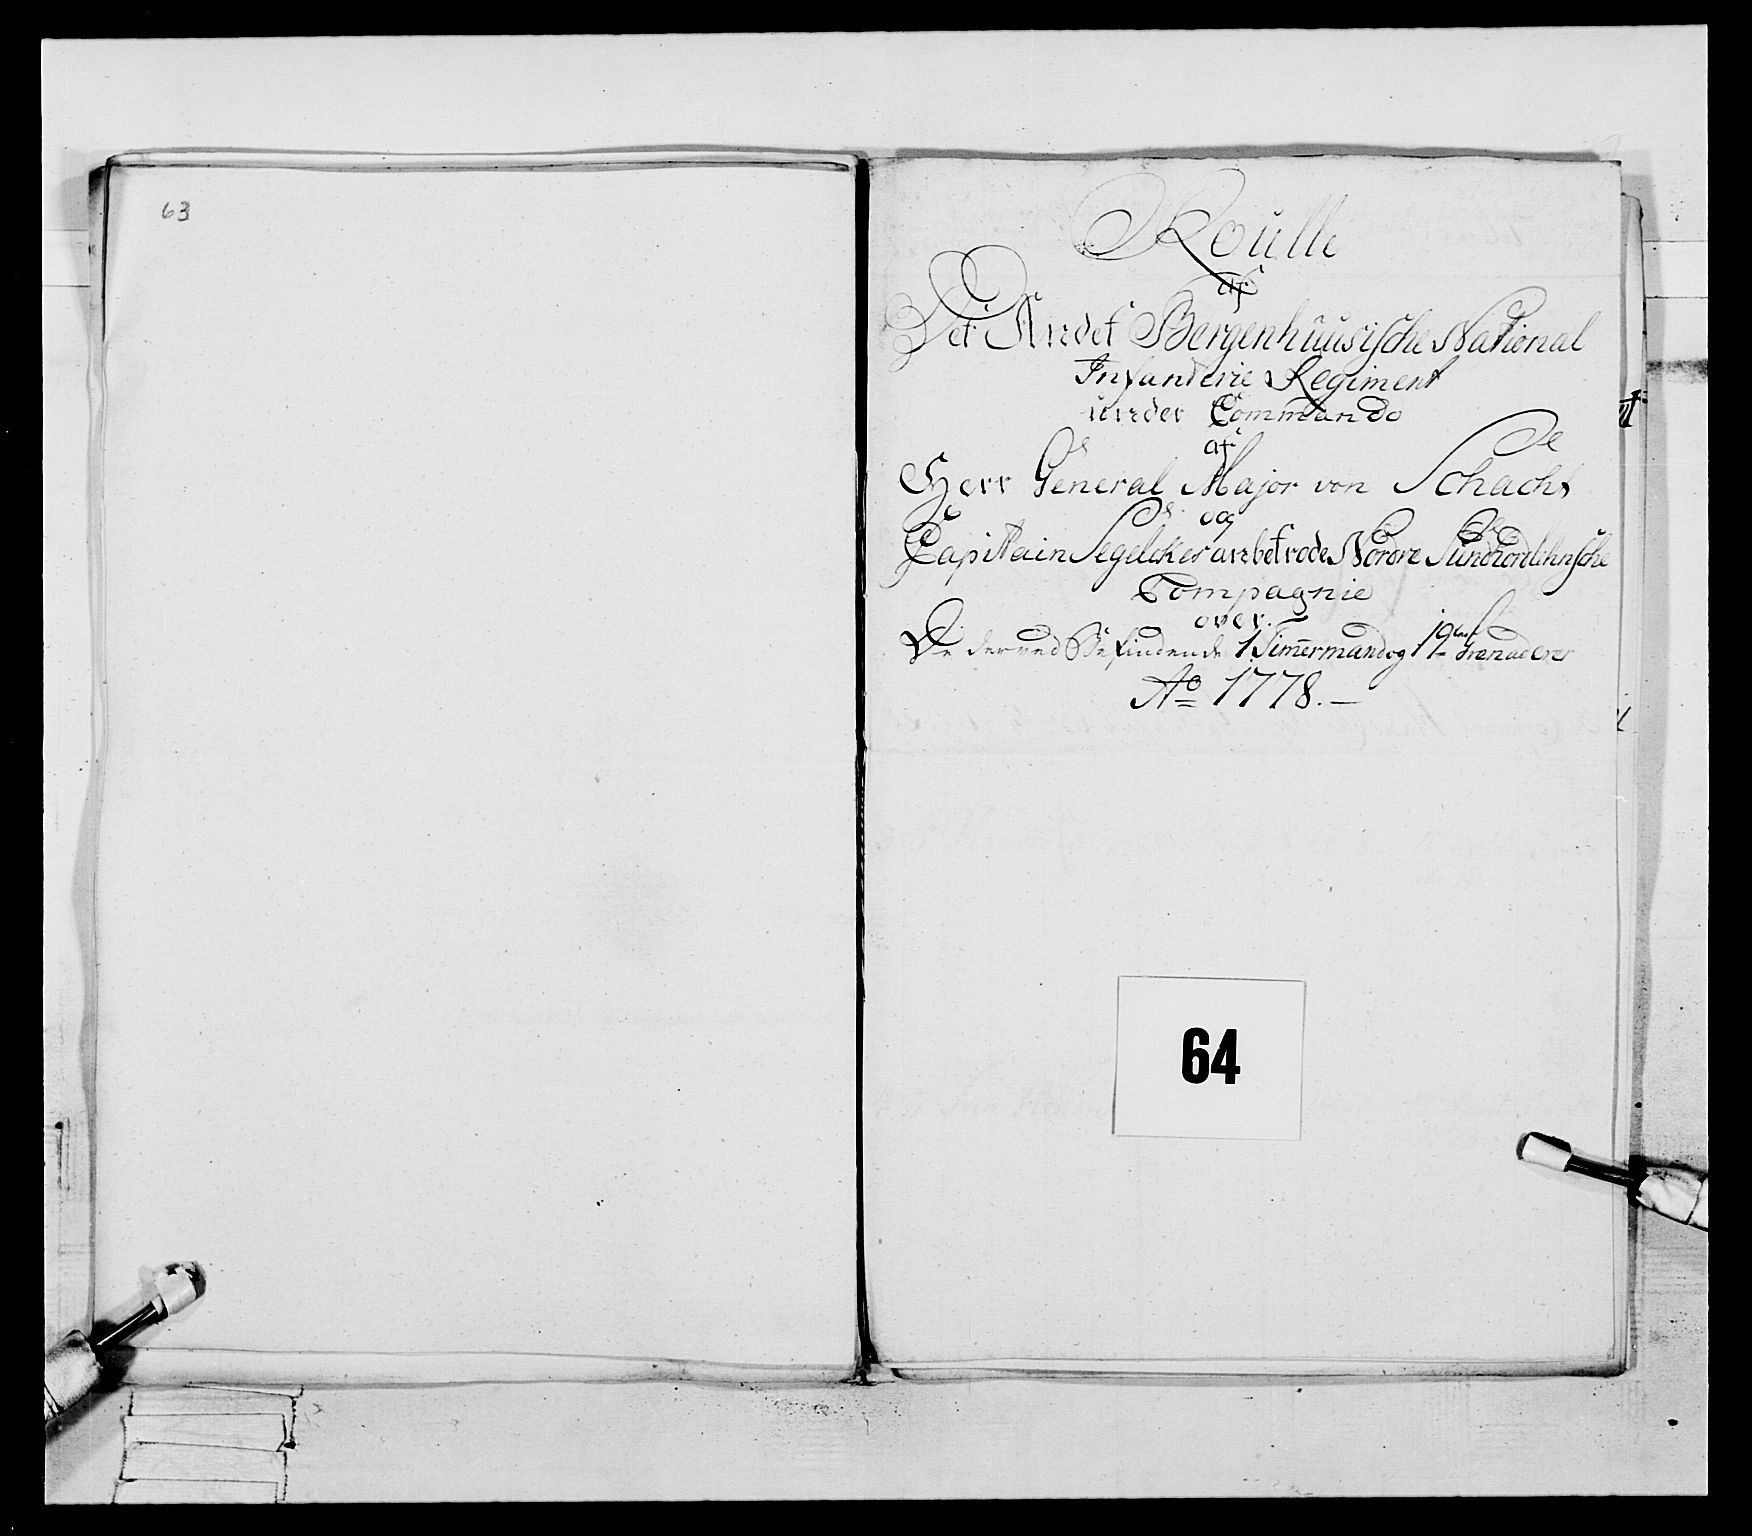 63
Roulle
af
Det Andet Bergenhuusische National
Infanterie Regiment
under Commando
af
Herr General Major von Schacht
og
Capitain Segelcker anbetrode Nordre Sundhordlehnsche
Compagnie
over.
De derved Befindende 1 Timermand og 19 Grenaderer
Ao 1778.
64